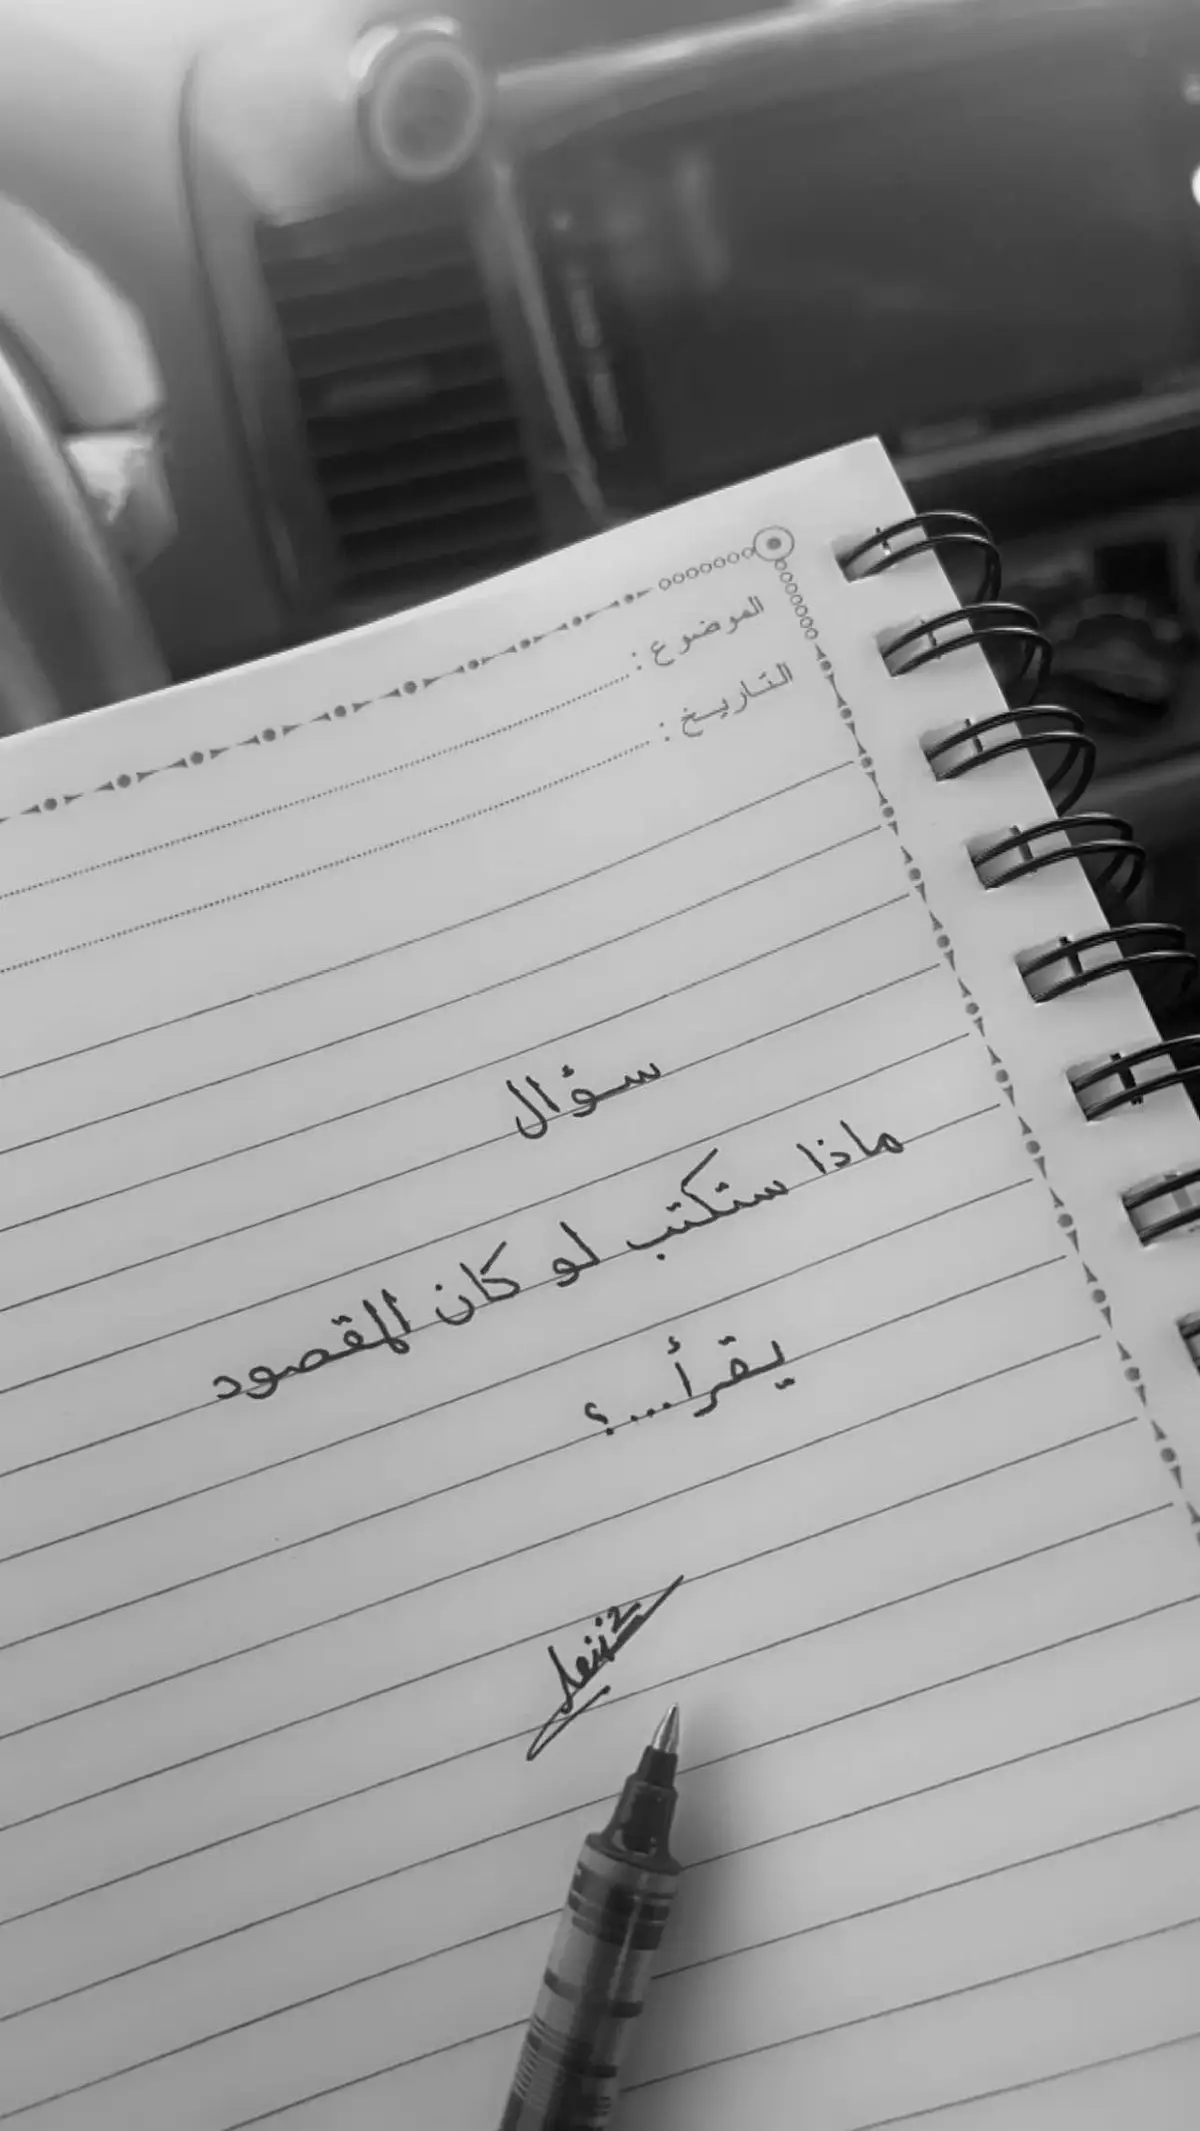 الموضوع :
التاريخ :
سؤال
ماذا ستكتب لو كان المقصود
يقرأ...؟